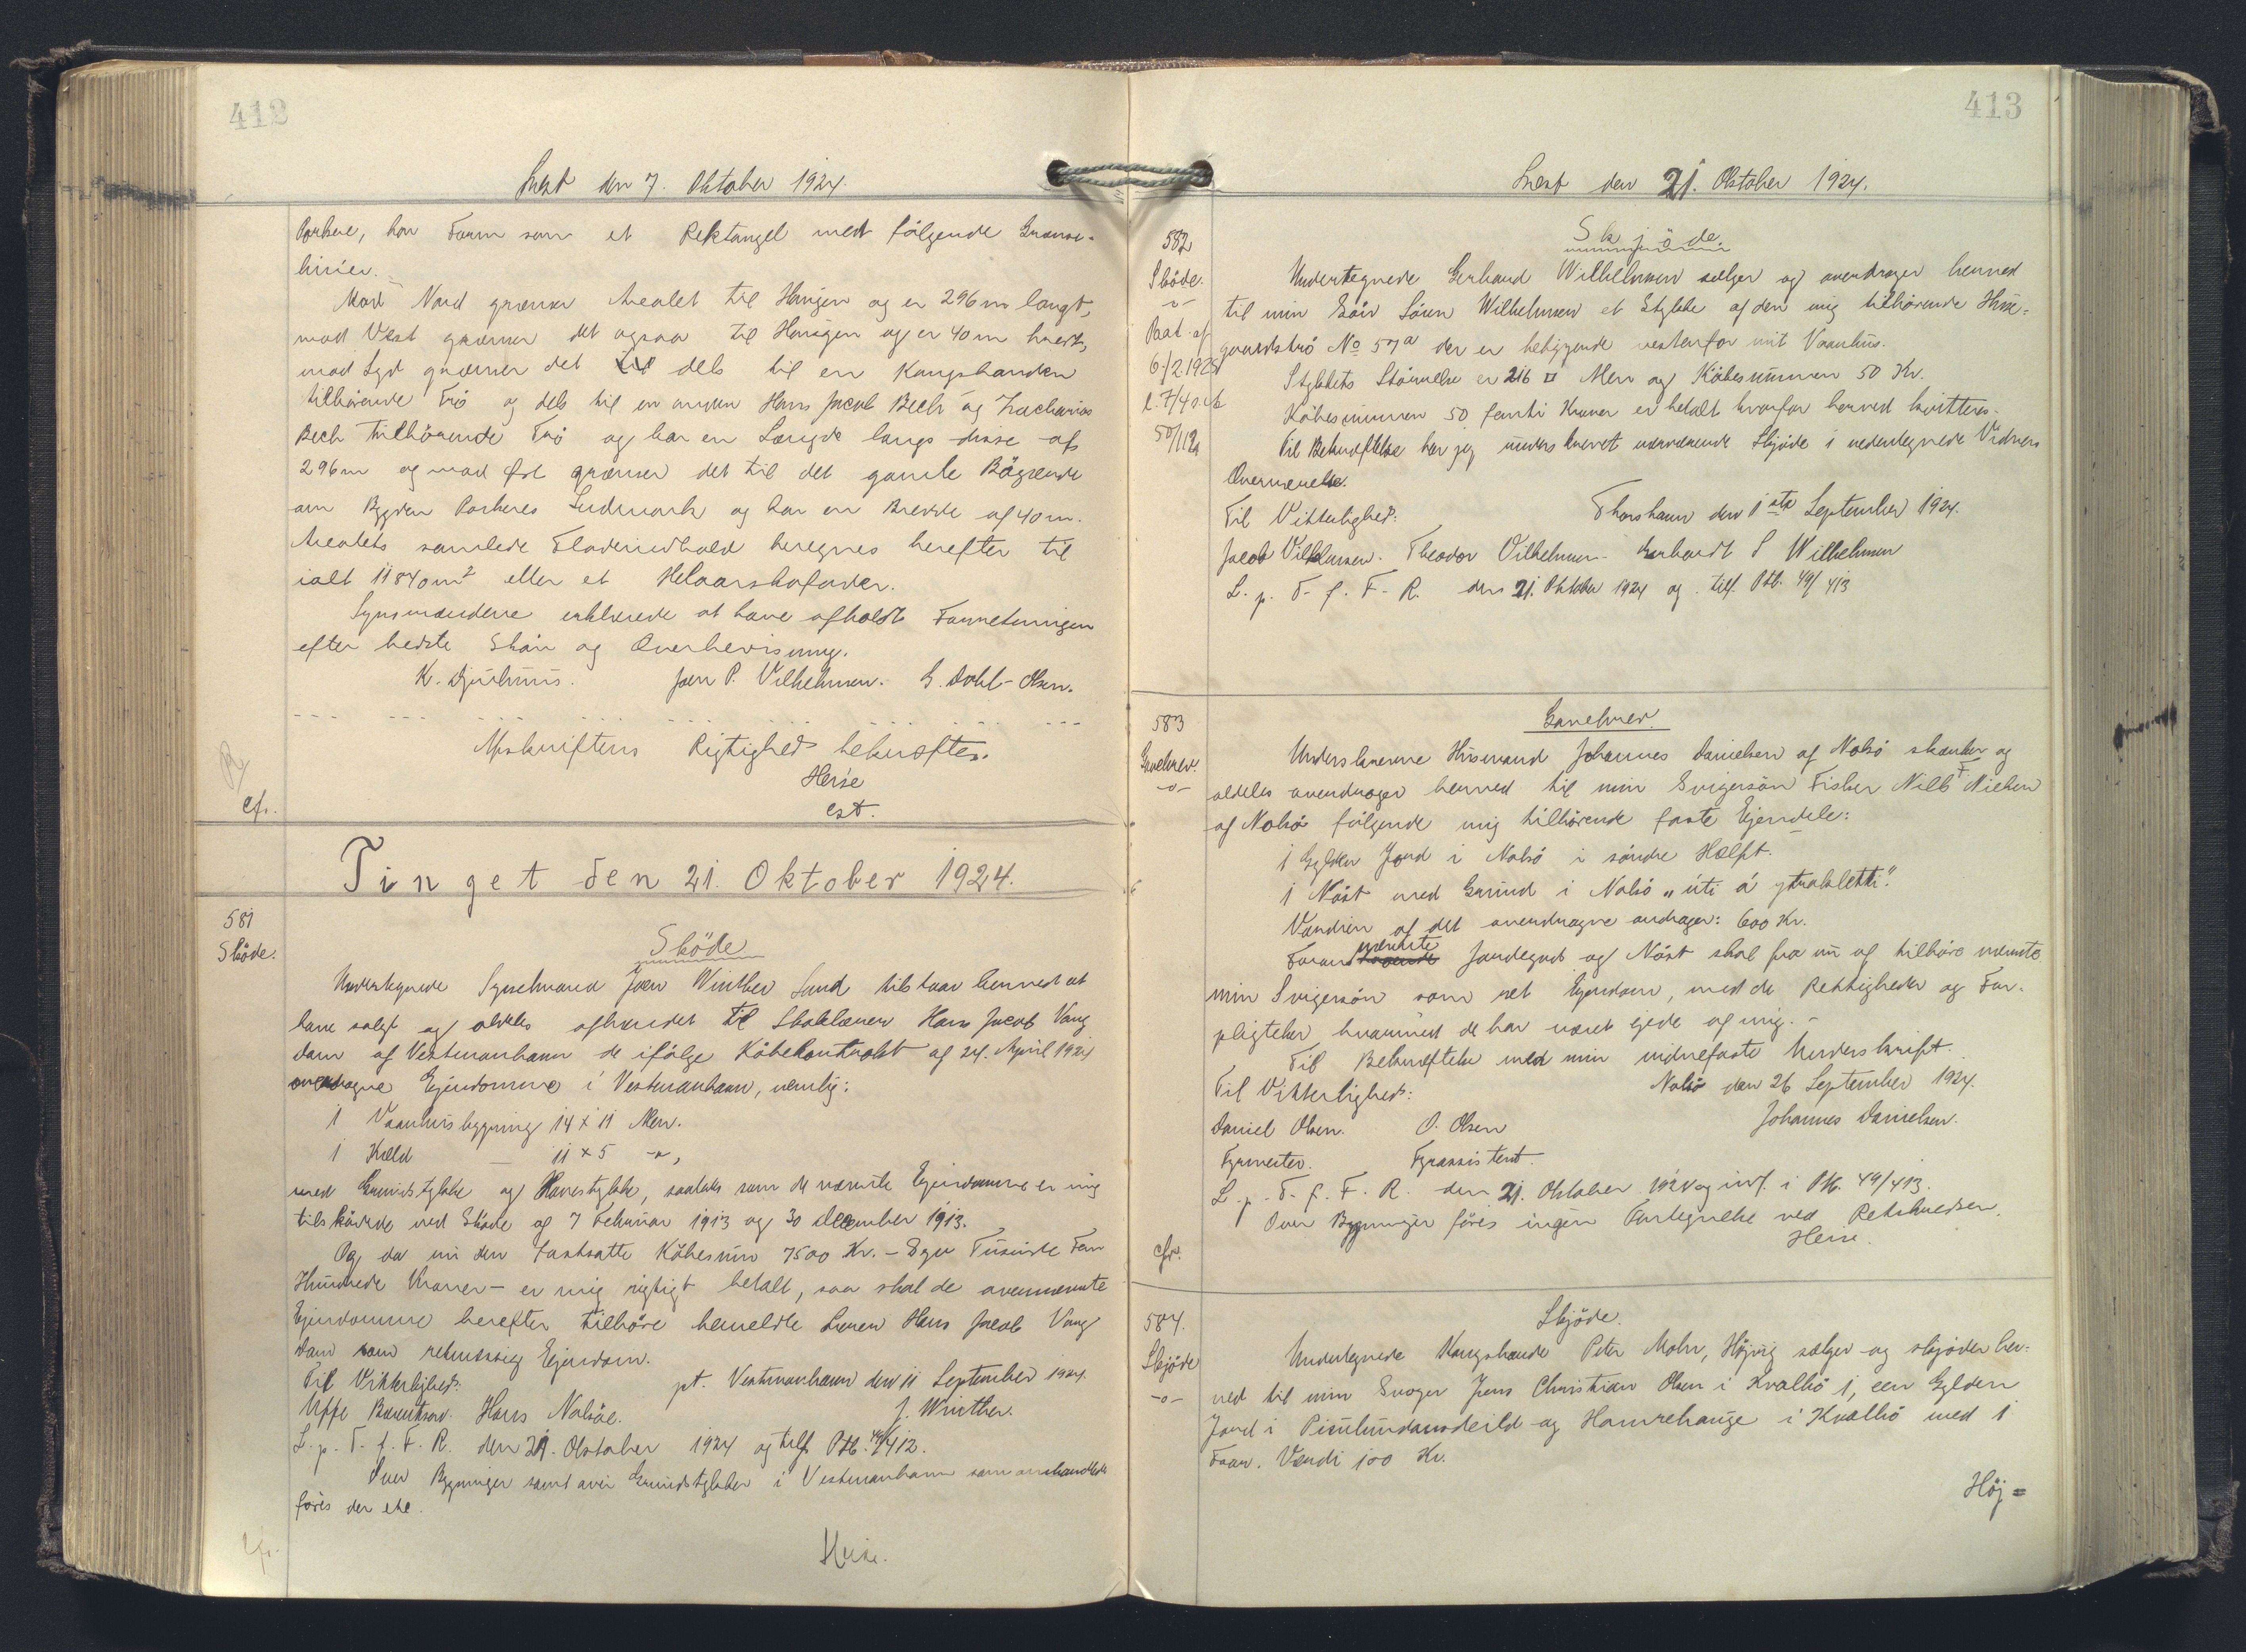 412
Læst den 7. Oktober 1924.
Porkere, har Form som et Rektangel med følgende Grænse-
linier.
Mod Nord grænser Arealet til Haugen og er 296 m langt,
mod Vest grænser det ogsaa til Haugen og er 40 m bredt,
mod Syd grænser det til dels til en Kongsbonden
tilhørende Trö og dels til en anden Hans Jacob Bech og Zacharias
Bech tilhörende Trö og har en Længde langs disse af
296 m og mod Øst grænser det til det gamle Bögærde
om Bygden Porkeres Indmark og har en Bredde af 40 m.
Arealets samlede Fladeindhold beregnes herefter til
ialt 11840 m² eller et Helaarskofoder.
Synsmændene erklærede at have afholdt Forretningen
efter bedste Skøn og Overbevisning.
K. Djurhuus. Joen P. Vilhelmsen. G. Dahl-Olsen.
Afskriftens Rigtighed bekræftes.
Heise
cst.
cfr.
Tinget den 21. Oktober 1924.
581
Sköde.
Sköde
Undertegnede Sysselmand Joen Winther Sand tilstaar herved at
have solgt og aldeles afhændet til Skolelærer Hans Jacob Vang
dam af Vestmanhavn de ifølge Köbekontrakt af 24. April 1924
overdragne Ejendomme i Vestmanhavn, nemlig:
1 Vaanhusbygning 14 x 11 Alen.
1 Kæld — 11 x 5 -"-,
med Grundstykke og Havestykke, saaledes som de nævnte Ejendomme er mig
tilskødede ved Sköde af 7 Februar 1913 og 30 december 1913.
Og da nu den fastsatte Köbesum 7500 Kr. - Syv Tusinde Fem
Hundrede Kroner - er mig rigtigt betalt, saa skal de ovennævnte
Ejendomme herefter tilhøre bemeldte Lærer Hans Jacob Vang
dam som retmæssig Ejendom.
Til Vitterlighed: pt. Vestmanhavn den 11 September 1924.
Uffe Hans Nolsöe. J. Winther.
L. p. T. f. F. R. den 21. Oktober 1924 og tilf. Ptb. 49/412.
Over Bygninger samt over Grundstykker i Vestmanhavn som omhandlede
föres der ete.
cfr.
Heise.
413
Læst den 21. Oktober 1924.
582
Sköde.
-o-
Rat. af
6./2.1925
50/112
Skjöde.
Undertegnede Gerhard Wilhelmsen sælger og overdrager herved
til min Sön Sören Wilhelmsen et Stykke af den mig tilhörende Huse-
gaardströ No 57a der er beliggende vestenfor mit Vaanhus.
Stykkets Størrelse er 216 □ Alen og Köbesummen 50 Kr.
Köbesummen 50 femti Kroner er betalt hvorfor herved kvitteres.
Til Bekræftelse har jeg underskrevet nærværende Skjöde i nedentegnede Vidners
Overværelse.
Til Vitterlighed: Thorshavn den 1ste September 1924.
Jacob Vilhelmsen. Theodor Vilhelmsen. Gerhardt S Wilhelmsen
L. p. T. f. F. R. den 21. Oktober 1924 og tilf. Ptb. 49/413
583
Gavebrev.
-o-
Gavebrev.
Underskrevne Husmand Johannes Danielsen af Nolsö skænker og
aldeles overdrager herved til min Svigersön Fisker Nils F Nielsen
af Nolsö følgende mig tilhörende faste Ejendele:
1 Gylden Jord i Nolsö i söndre Hælft.
1 Nöst med Grund i Nolsö "úti á ytraklettí."
Værdien af det overdragne andrager: 600 Kr.
Foran nævnte Jordegods og Nöst skal fra nu af tilhöre nævnte
min Svigersön som ret Ejendom, med de Rettigheder og For-
pligtelser hvormed de har været ejede af mig. -
Til Bekræftelse med min vidnefaste Underskrift.
Til Vitterlighed: Nolsö den 26 September 1924.
Daniel Olsen. O. Olsen Johannes Danielsen.
Fyrmester. Fyrassistent.
L. p. T. f. F. R. den 21. Oktober 1924 og indf. i Ptb. 49/413.
Over Bygninger föres ingen Fortegnelse ved Retskredsen.
Heise.
cfr.
584.
Skjöde
-o-
Skjöde.
Undertegnede Kongsbonde Peter Mohr, Höjvig sælger og skjöder her-
ved til min Svoger Jens Christian Olsen i Kvalbö 1, een Gylden
Jord i og Hamrehauge i Kvalbö med 1
Faar. Værdi 100 Kr.
Höj=